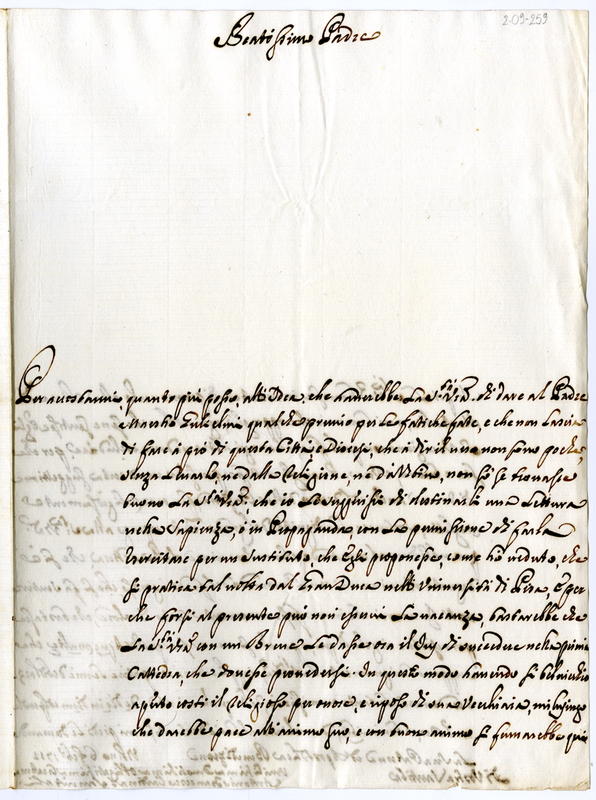 2-09-259
Beatissimo Padre
Per accostarmi quanto più posso, all'Idea, che haverebbe La S.tà V.ra di dare al Padre
Maestro qualche premio per le fatiche fatte, e che non Lascia
di fare à prò di questa Città, e Diocesi, che à dir il vero non sono poche,
senza Levarlo, ne dalla Religione, ne da Urbino, non sò se trovasse
buono La S.tà V.ra che io Le supplichi di destinarli una Lettura
nella Sapienza, ò in Propaganda, con La permissione di farla
Esercitare per un sustituto, che Egli proponesse, come hò veduto, che
si pratica tal volta dal Gran Duca nell' Università di Pisa, E per
che forsi al presente può non esservi La vacanza, bastarebbe che
La S.tà V.ra con un Breve Le dasse ora il Jus di succedere nella prima
Cattedra, che dovesse provedersi. In questo modo havendo
costì il Religioso per onore, e riposo di sua Vecchiaia, mi lusingo
che darebbe pace all'animo suo, e con buon animo si fermarebbe qui